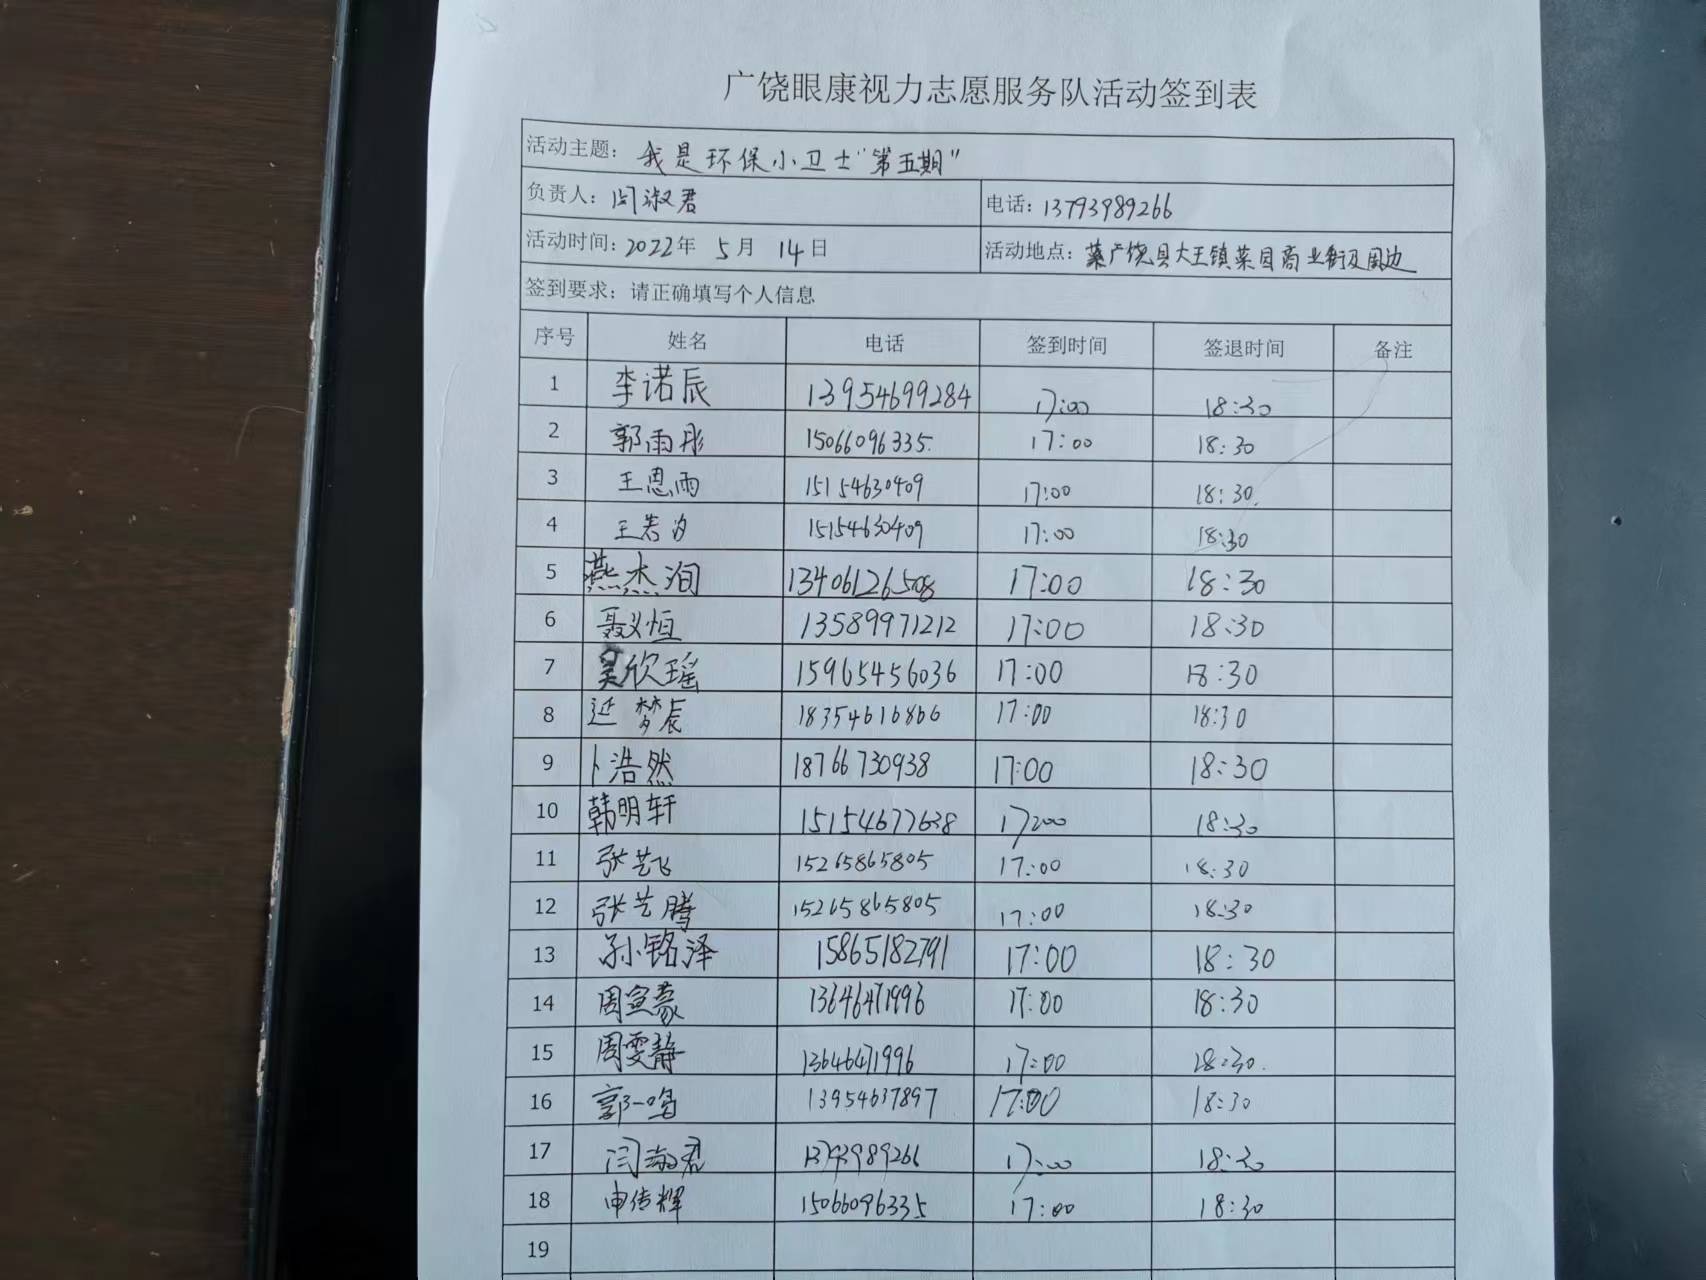 广饶眼康视力志愿服务队活动签到表
活动主题：我是环保小卫士“第五期”
负责人：闫淑君 电话：13793989266
活动时间：2022年 5月 14日 活动地点：广饶县大王镇菜园商业街及周边
签到要求：请正确填写个人信息
序号 姓名 电话 签到时间 签退时间 备注
1 李诺辰 13954699284 17:00 18:30
2 郭雨彤 15066096335. 17:00 18:30
3 王恩雨 15154630409 17:00 18:30.
4 王若汐 15154630409 17:00 18:30
5 燕杰洵 13406126508 17:00 18:30
6 聂义恒 13589971212 17:00 18:30
7 吴欣瑶 15965456036 17:00 18:30
8 延梦辰 18354616866 17:00 18:30
9 卜浩然 18766730938 17:00 18:30
10 韩明轩 15154677638 17:00 18:30
11 张艺飞 15265865805 17:00 18:30
12 张艺腾 15265865805 17:00 18:30
13 孙铭泽 15865182791 17:00 18:30
14 周宣豪 13646471996 17:00 18:30
15 周雯静 13646471996 17:00 18:30.
16 郭一鸣 13954637897 17:00 18:30
17 闫淑君 13793989266 17:00 18:30
18 申传辉 15066096335 17:00 18:30
19